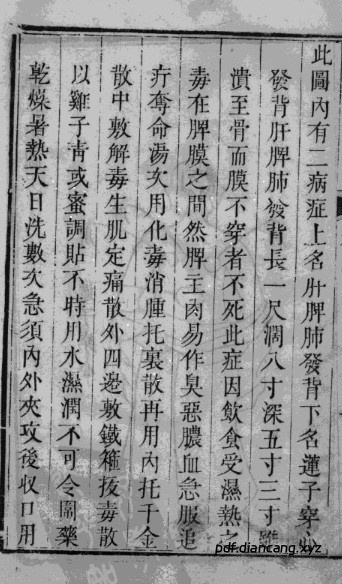 此圖內有二病症上名肝脾肺發背下名蓮子穿心
發背肝脾肺發背長一尺濶八寸深五寸三寸雖
潰至骨而膜不穿者不死此症因飲食受濕熱之
毒在脾膜之間然脾主肉易作臭惡膿血急服追
疔奪命湯次用化毒消腫托裏散再用內托千金
散中敷解毒生肌定痛散外四邊敷鐵箍拔毒散
以雞子青或蜜調貼不時用水濕潤不可令圍藥
乾燥暑熱天日洗數次急須內外夾攻後收口用
pdf.diancang.xyz